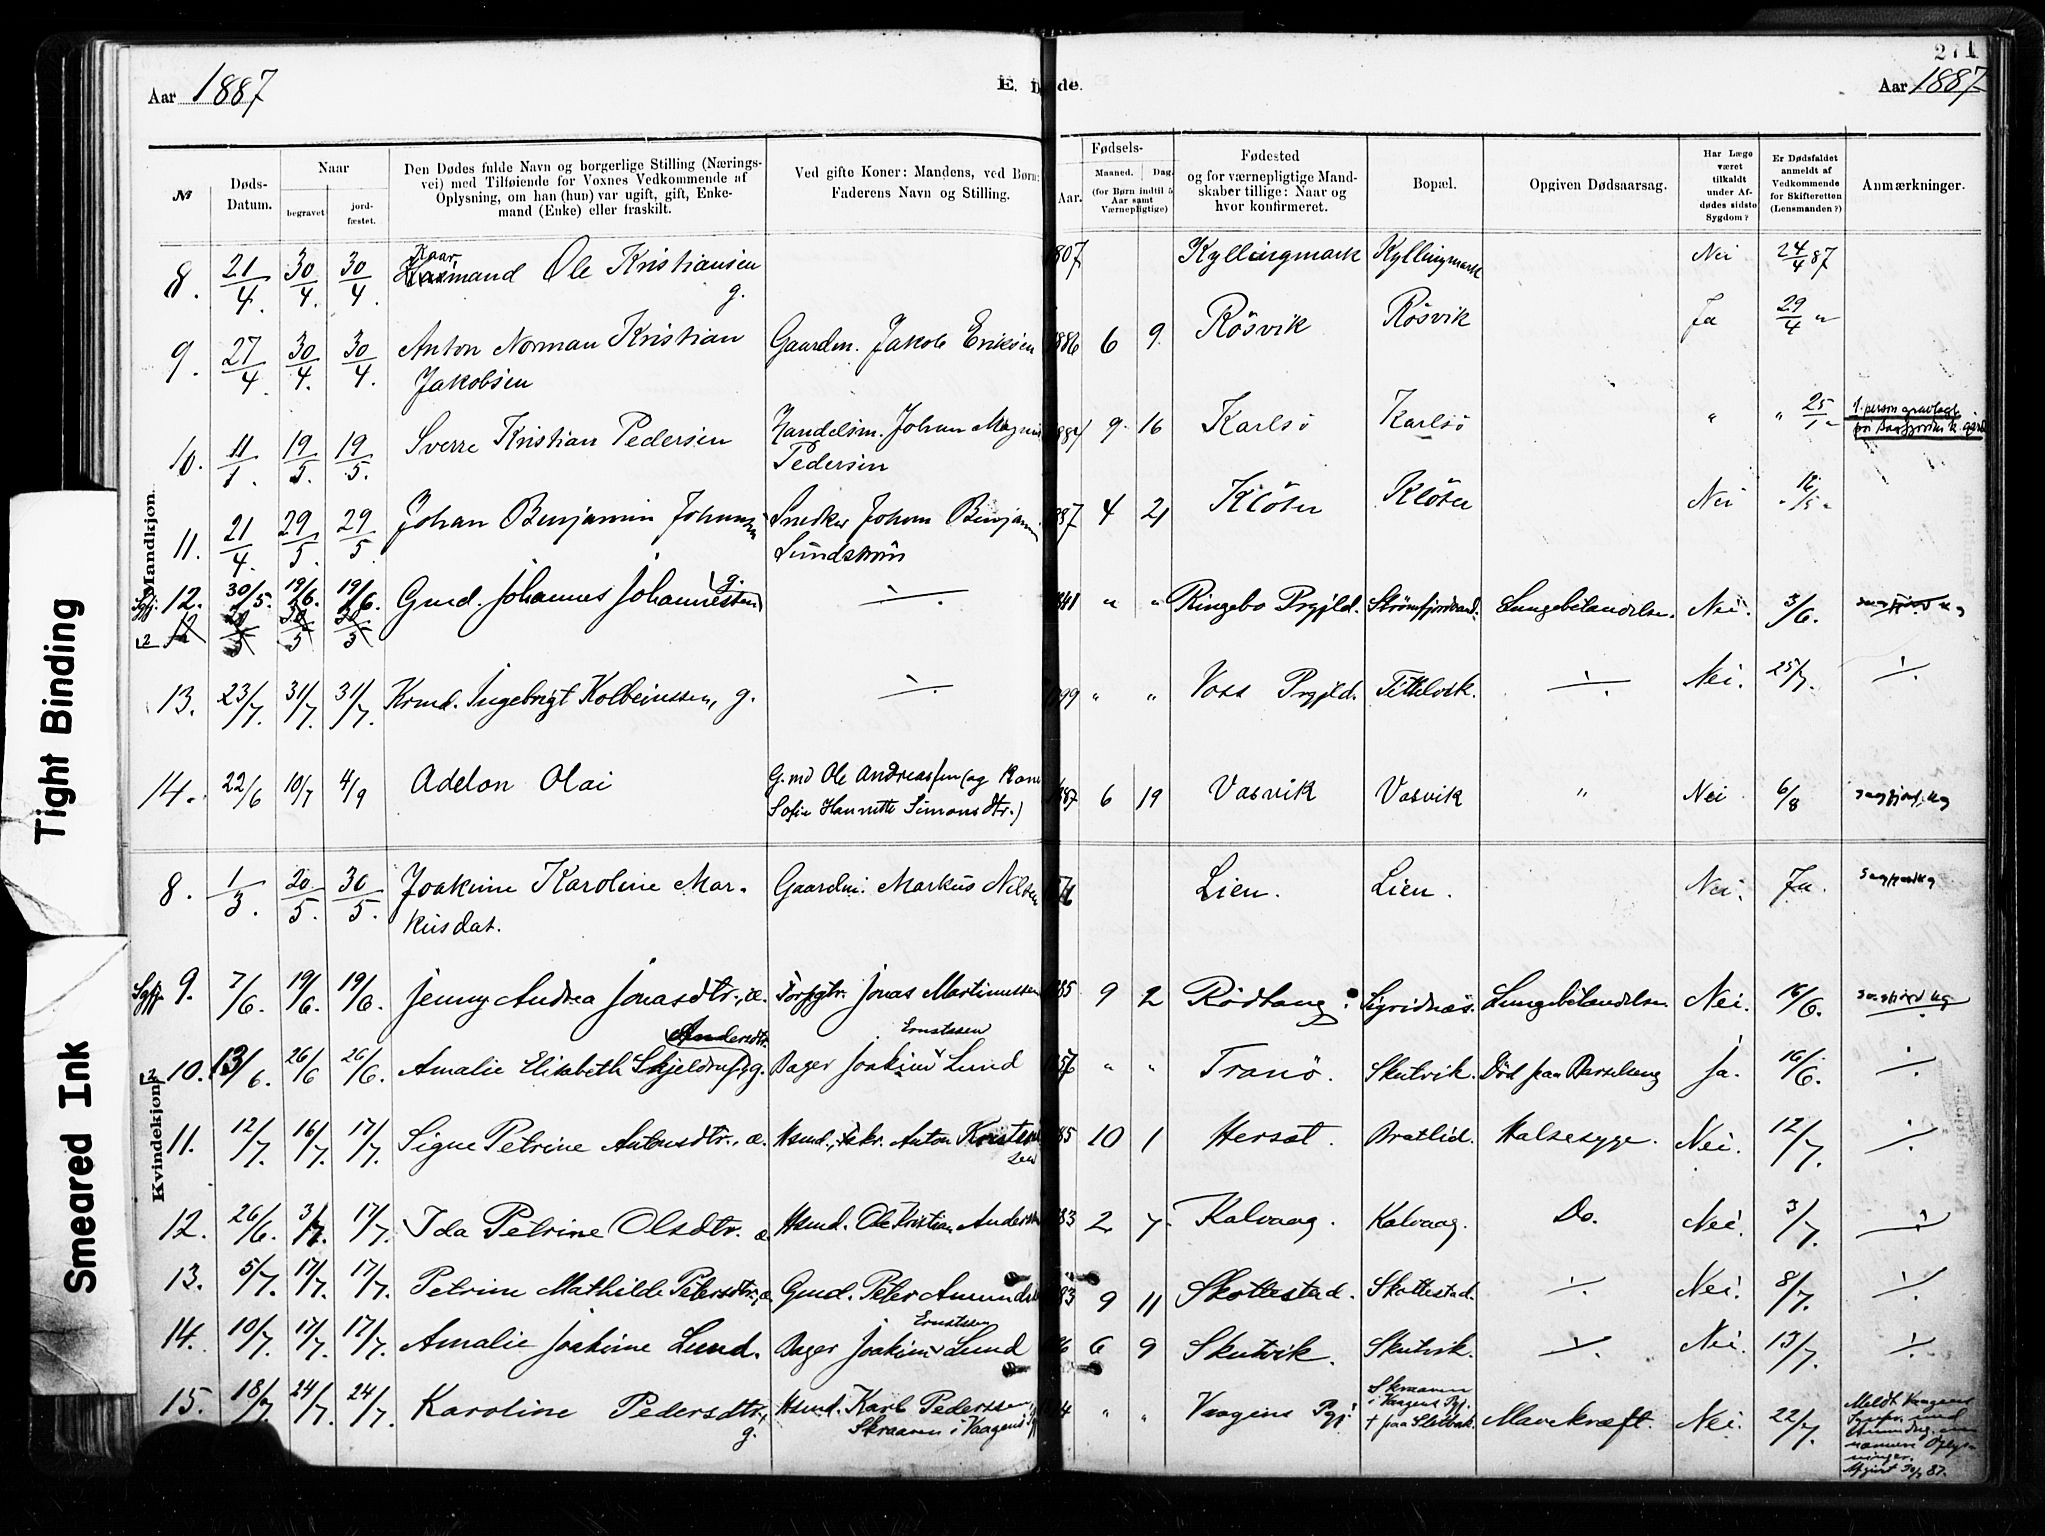 271
Aar 1887
E. Døde.
Aar 1887
№
Døds-Datum.
Naar
begravet
jord-fæstet.
Den Dødes fulde Navn og borgerlige Stilling (Nærings-
vei) med Tilføiende for Voxnes Vedkommende af
Oplysning, om han (hun) var ugift, gift, Enke-
mand (Enke) eller fraskilt.
Ved gifte Koner: Mandens, ved Børn:
Faderens Navn og Stilling.
Fødsels-
Aar.
Maaned. Dag.
(for Børn indtil 5
Aar samt
Værnepligtige)
Fødested
og for værnepligtige Mand-
skaber tillige: Naar og
hvor konfirmeret.
Bopæl.
Opgiven Dødsaarsag.
Har Læge
været
tilkaldt
under Af-
dødes sidste
Sygdom?
Er Dødsfaldet
anmeldt af
Vedkommende
for Skifteretten
(Lensmanden?)
Anmærkninger.
Mandkjøn
8. 21/4. 30/4. 30/4. Kaarmand Ole Kristiansen g. 1807 Kyllingmark Kyllingmark Nei 24/4 87
9. 27/4. 30/4. 30/4. Anton Norman Kristian Gaardm. Jakob Eriksen 1886 6 9. Rösvik Rösvik Ja 29/4 "
Jakobsen
10. 11/1. 19/5. 19/5. Sverre Kristian Pedersen Handelsm. Johan Magnus 1884 9 16 Karlsö Karlsö " " 25/1 "
Pedersen
11. 21/4. 29/5. 29/5. Johan Benjamin Johansen Snedker Johan Benjamin 1887 4 21 Klöten Klöten Nei
Lundström
Sgfj. 12. 30/5. 19/6. 19/6. Gmd. Johannes Johannessen g. ./. 1841 " " Ringebo Prgjld. Strömfjordvand. Lungebetændelse. Nei. 3/6. Sagfjord kg
13. 23/7. 31/7. 31/7. Krmd. Ingebrigt Kolbeinssen, g. ./. 1799 " " Voss Prgjld. Tittelvik. ./. Nei. 25/7. ./.
14. 22/6 10/7 4/9 Adelon Olai G.md Ole Andreassen (og Kone 1887 6 19 Vasvik Vasvik " Nei 6/8 Sagfjord kg
Sofie Hanrette Simonsdtr.)
Kvindekjøn
8. 1/3. 20/5. 30/5. Joakime Karoline Mar- Gaardm. Markus Nilsen Lien. Lien. Nei. Ja. Sagfjord kg
kusdat.
Sgfj. 9. 7/6. 19/6. 19/6. Jenny Andrea Jonasdtr., æ. Jonas Martinussen 1885 9 2 Rödtang. Sigridnæs. Lungebetændelse Nei. 16/6. Sagfjord kg
Andersdtr. Ernstssen
10. 13/6. 26/6 26/6. Amalie Elisabeth Skjeldrup, g. Dager Joakim Lund 1857 " " Tranö. Skutvik. Död paa Barselseng Ja. 16/6. ./.
11. 12/7. 16/7. 17/7. Signe Petrine Antonsdtr., æ. Hsmd., Anton Kristen- 1885 10 1 Hersæt. Bratlid. Halsesyge. Nei. 12/7. ./.
sen
12. 26/6. 3/7. 17/7. Ida Petrine Olsdtr. æ. Hsmd. Ole Kristian Andersen 1883 2 7. Kalvaag. Kalvaag. Do. Nei. 3/7. ./.
13. 5/7. 17/7. 17/7. Petrine Mathilde Petersdtr., æ. Gmd. Peter Amundsen 1883 9 11 Skottestad. Skottestad. ./. Nei. 8/7. ./.
Ernstssen
14. 10/7. 17/7. 17/7. Amalie Joakime Lund. Dager Joakim Lund 1886 6 9 Skutvik. Skutvik. ./. Nei. 13/7. ./.
15. 18/7. 24/7. 24/7. Karoline Pedersdtr., g. Hsmd. Karl Pederssen, " " Vaagens Pgj. Skraaven Mavekræft. Nei. 22/7.
Skraaven i Vaagens i Vaagens Pgj.
† paa Slotvik.
Meldt Vaagens
Sgpr. med
Anmodn. om
nærmere Oplys-
ninger.
Afgivet 30/7 87.
Tight Binding
Smeared Ink